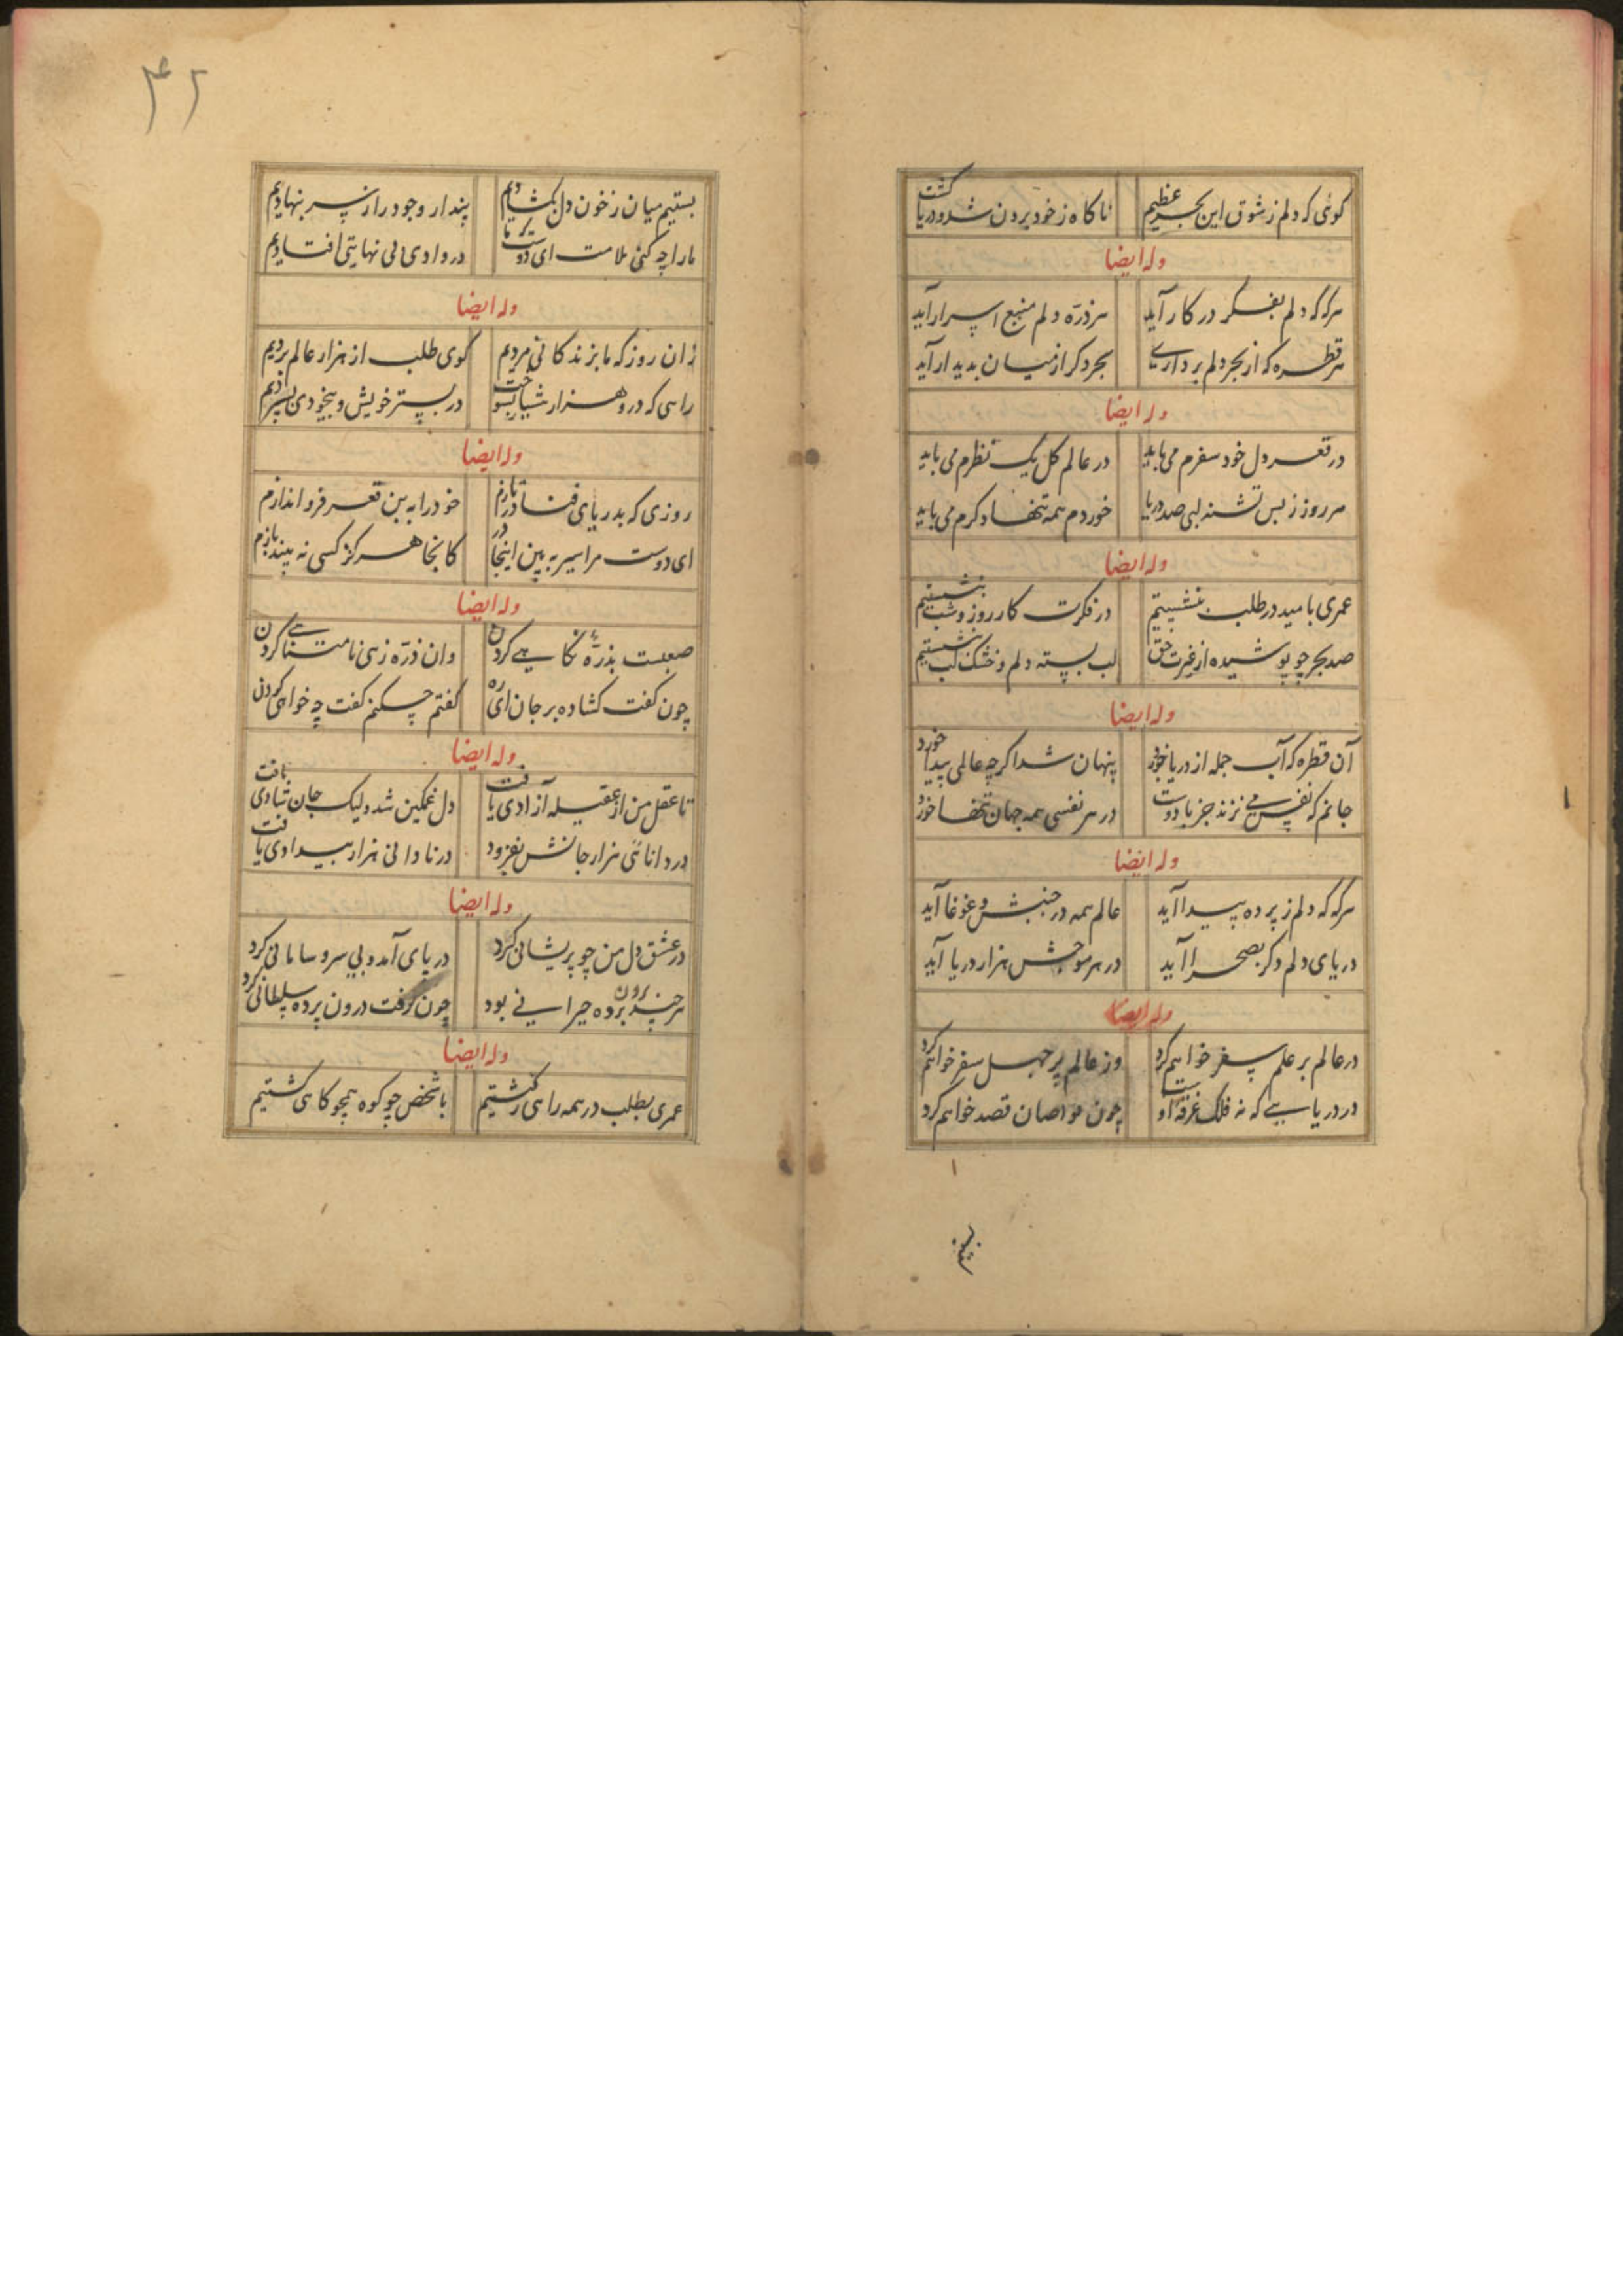 کوئی که دلم ز شوق این بحر عظیم ناکاه ز خود برون شد و دریا کشت
وله ایضا
هرکه که دلم بفکر در کار آید هر ذرّه دلم منبع اسرار آید
هر قطره که از بحر دلم برداری بحر دکر از میان بدیدار آید
وله ایضا
در قعر دل خود سفرم می باید در عالم کل یک نظرم می باید
هر روز ز بس تشنه لبی صد دریا خوردم همه تنها و کرم می باید
وله ایضا
عمری بامید در طلب بنشستیم در فکرت کار روز و شب بنشستیم
صد بحر چو پوشیده از غیرت حق لب بسته دلم و خشک لب بنشستیم
وله ایضا
آن قطره که آب جمله از دریا خورد پنهان شد اکرچه عالمی پیدا خورد
جانم که نفس می نزند جز با دوست در هر نفسی همه جهان تنها خورد
وله ایضا
هرکه که دلم ز پرده پیدا آید عالم همه در جنبش و غوغا آید
دریای دلم دکر بصحرا آید در هر موجش هزار دریا آید
وله ایضا
در عالم بر علم سفر خواهم کرد وز عالم پر جهل سفر خواهم کرد
در دریایی که نه فلک غرقه اوست چون غواصان قصد خواهم کرد
بستیم
۴۲
بستیم میان ز خون دل بکشادیم پندار وجود را ز سر بنهادیم
ما را چه کنی ملامت ای دوست که ما در وادی بی نهایتی افتادیم
وله ایضا
زان روز که ما بزندکانی مردیم کوی طلب از هزار عالم بردیم
راهی که درو هزار شیاب بسوخت در بستر خویش و بیخودی بسپردیم
وله ایضا
روزی که بدریای فنا در تازم خود را به بن قعر فرو اندازم
ای دوست مرا سیر به بین اینجا در کانجا هرکز کسی نه بیند بازم
وله ایضا
صعبست بذرّه نکاهی کردن وان ذرّه ز بی نامتناهی کردن
چون کفت کشاده بر جان ای ره کفتم چکنم کفت چه خواهی کردن
وله ایضا
تا عقل من از عقیله آزادی یافت دل غمکین شد ولیک جان شادی یافت
در دانائی هزار جانش نفزود در نادانی هزار بیدادی یافت
وله ایضا
در عشق دل من چو پریشانی کرد دریای آمد و بی سر و سامانی کرد
هر چند برون پرده حیرانی بود چون کرفت درون پرده سلطانی کرد
وله ایضا
عمری بطلب در همه راهی کشتیم با شخص چو کوه همچو کاهی کشتیم